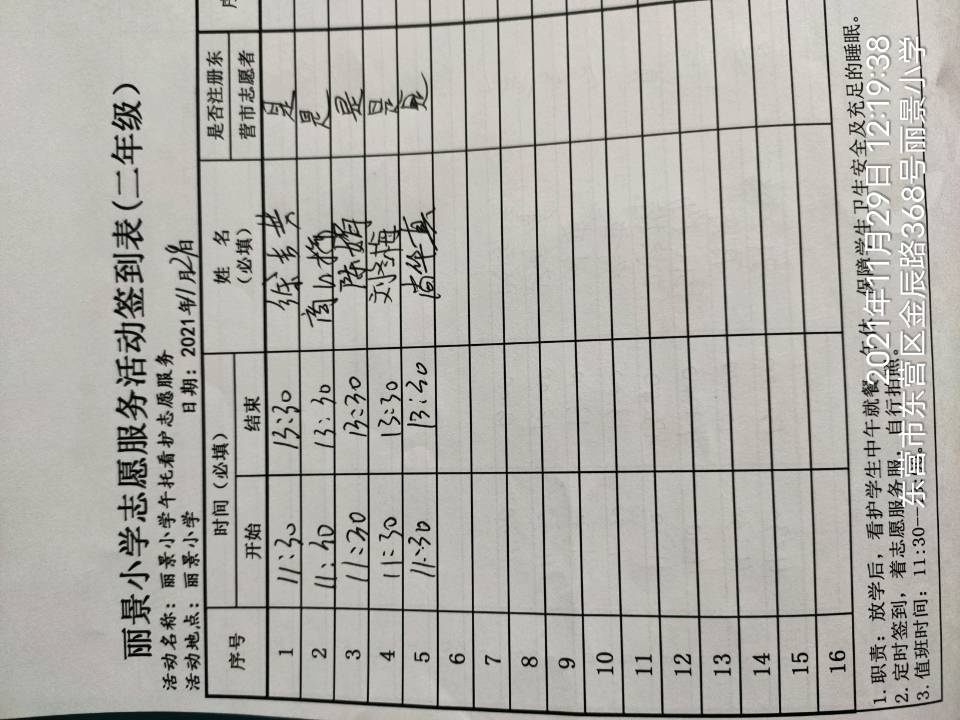 丽景小学志愿服务活动签到表(二年级)
活动名称：丽景小学午托看护志愿服务
活动地点：丽景小学 日期：2021年11月29日
序号 时间（必填） 姓 名（必填） 是否注册东营市志愿者 序
开始 结束
1 11:30 13:30 是
2 11:30 13:30 是
3 11:30 13:30 陈娟 是
4 11:30 13:30 是
5 11:30 13:30 是
6
7
8
9
10
11
12
13
14
15
16
1. 职责：放学后，看护学生中午就餐、午休，保障学生卫生安全及充足的睡眠。
2. 定时签到，着志愿服务服，自行拍照。
3. 值班时间：11:30—
2021年11月29日 12:19:38
东营市东营区金辰路368号丽景小学